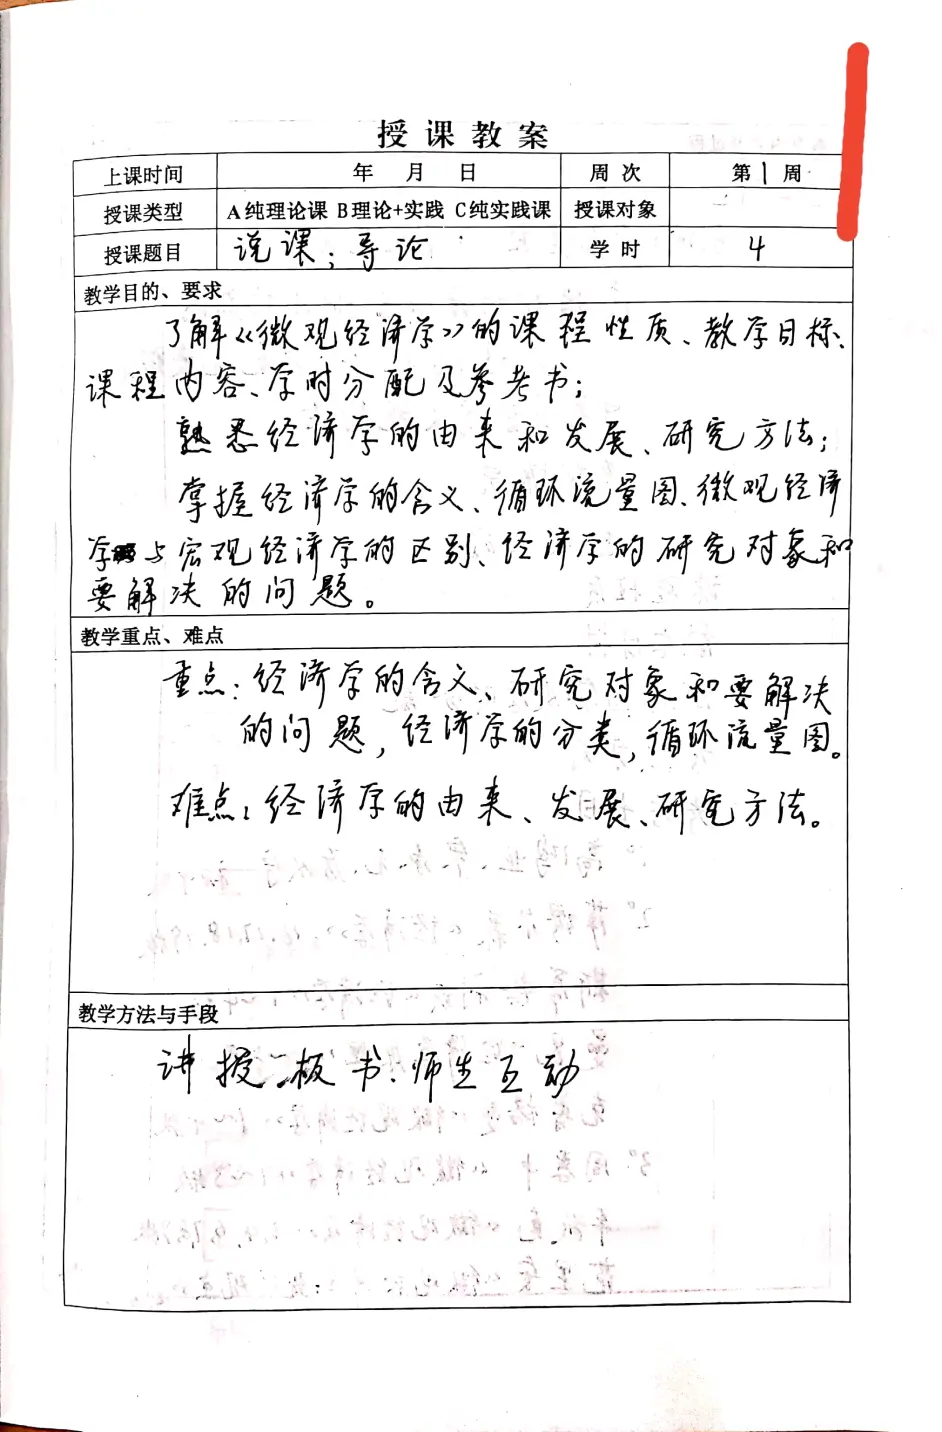 授课教案
上课时间 年 月 日 周次 第1周
授课类型 A纯理论课 B理论+实践 C纯实践课 授课对象
授课题目 说课；导论 学时 4
教学目的、要求
了解《微观经济学》的课程性质、教学目标、
课程内容、学时分配及参考书；
熟悉经济学的由来和发展、研究方法；
掌握经济学的含义、循环流量图、微观经济
学与宏观经济学的区别、经济学的研究对象和
要解决的问题。
教学重点、难点
重点：经济学的含义、研究对象和要解决
的问题，经济学的分类，循环流量图。
难点：经济学的由来、发展、研究方法。
教学方法与手段
讲授、板书、师生互动